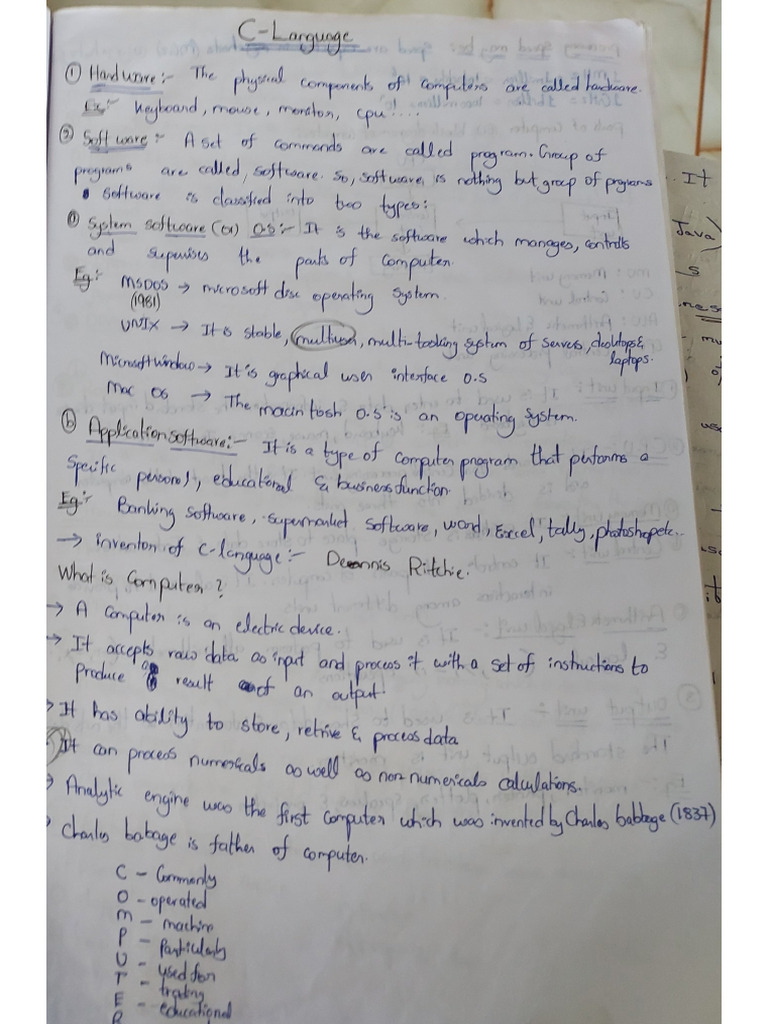 C-Language
① Hardware:- The physical components of computers are called hardware.
Ex:- Keyboard, mouse, monitor, cpu....
② Software:- A set of commands are called program. Group of
programs are called, software. So, software, is nothing but group of programs
Software is classified into two types:
System software (or) O.S:- It is the software which manages, controls
and supervises the parts of computer.
Eg:- MSDOS → microsoft disc operating system.
(1981)
UNIX → It is stable, multiuser, multi-tasking system of servers, desktops &
laptops.
Microsoft window → It is graphical user interface O.S
Mac OS → The macintosh O.S is an operating system.
ⓑ Application software:- It is a type of computer program that performs a
specific personal, educational & business function.
Eg:- Banking software, supermarket software, word, Excel, tally, photoshop etc..
→ inventor of C-language:- Dennis Ritchie.
What is Computer?
→ A computer is an electric device.
→ It accepts raw data as input and process it with a set of instructions to
produce result of an output.
→ It has ability to store, retrive & process data
It can process numericals as well as non numericals calculations.
→ Analytic engine was the first computer which was invented by Charles babbage (1837)
Charles babage is father of computer.
C - Commonly
O - operated
M - machine
P - Particularly
U - used for
T - trading
E - educational
R
It
Java)